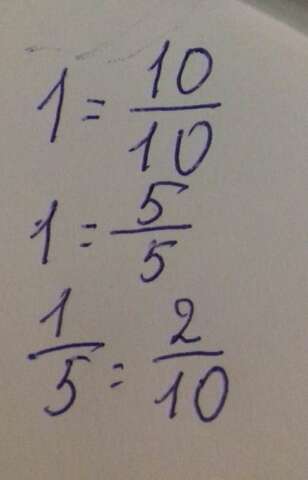 1 = 10/10
1 = 5/5
1/5 = 2/10